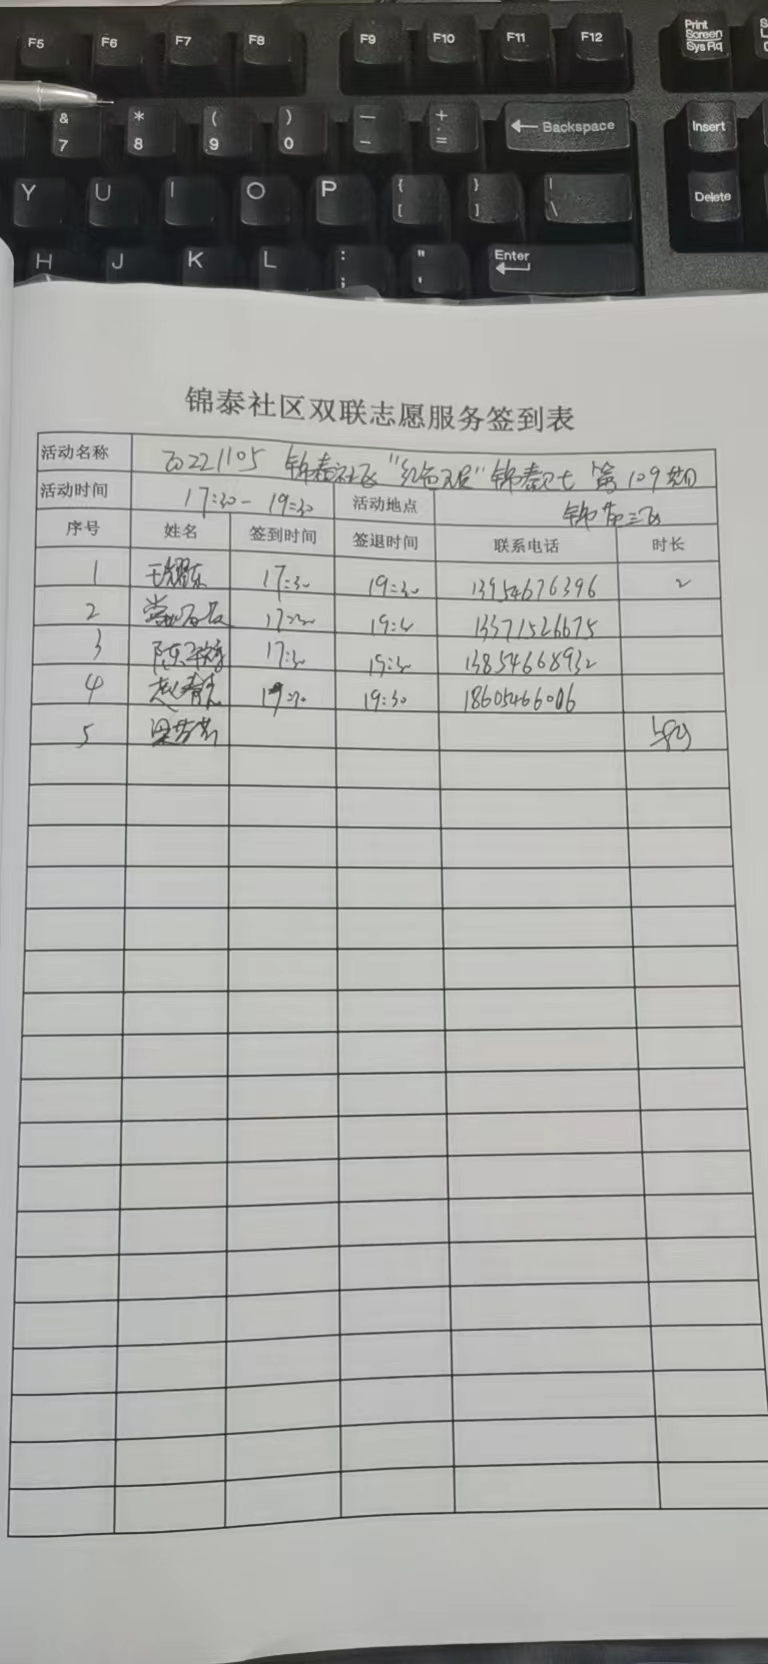 F5 F6 F7 F8 F9 F10 F11 F12 Print Screen SysRq
& 7 * 8 ( 9 ) 0 — - + = ← Backspace Insert
Y U I O P { [ } ] | \ Delete
H J K L : ; " ' Enter
锦泰社区双联志愿服务签到表
活动名称 20221105 锦泰社区"红色 " 锦泰卫士 第109期
活动时间 17:30-19:30 活动地点 锦泰三区
序号 姓名 签到时间 签退时间 联系电话 时长
1 王耀东 17:30 19:30 13954676396 2
2 17:30 19:30 13371526675
3 陈 17:30 19:30 13854668932
4 赵青 19:30 18605466006
5 梁芳芳